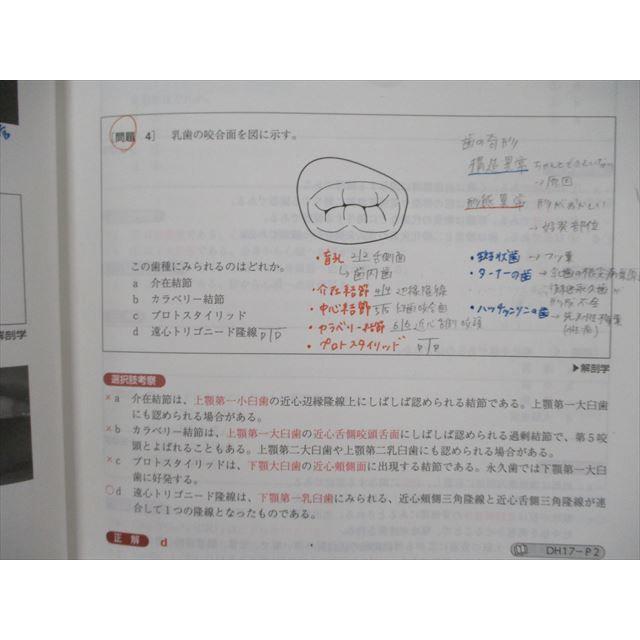 ［問題 4］ 乳歯の咬合面を図に示す。
この歯種にみられるのはどれか。
a 介在結節
b カラベリー結節
c プロトスタイリッド
d 遠心トリゴニード隆線
歯の奇形
構造異常
→原因
形態異常 形がおかしい
→好発部位
・盲孔 2|2 舌側歯
↳歯内歯
・介在結節 4|4 辺縁隆線
・中心結節 5|5 臼歯咬合面
・カラベリー結節 6|6 近心舌側咬頭
・プロトスタイリッド
・斑状歯 → フッ素
・ターナーの歯
・ハッチンソンの歯
▶解剖学
解剖学
選択肢考察
×a 介在結節は、上顎第一小臼歯の近心辺縁隆線上にしばしば認められる結節である。上顎第一大臼歯
にも認められる場合がある。
×b カラベリー結節は、上顎第一大臼歯の近心舌側咬頭舌面にしばしば認められる過剰結節で、第5咬
頭とよばれることもある。上顎第二大臼歯や上顎第二乳臼歯にも認められる場合がある。
×c プロトスタイリッドは、下顎大臼歯の近心頰側面に出現する結節である。永久歯では下顎第一大臼
歯に好発する。
○d 遠心トリゴニード隆線は、下顎第一乳臼歯にみられる、近心頰側三角隆線と近心舌側三角隆線が連
合して1つの隆線となったものである。
正解 d
DH17－P2